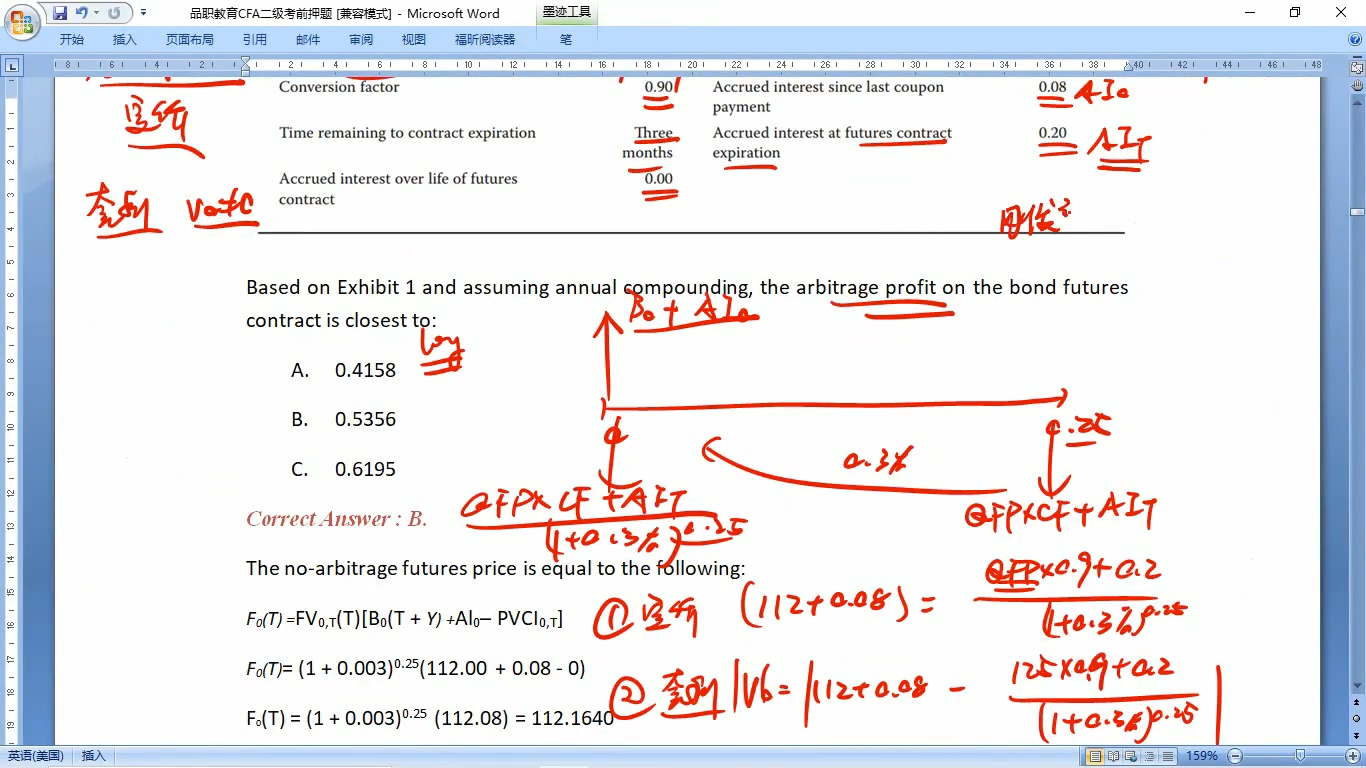 品职教育CFA二级考前押题 [兼容模式] - Microsoft Word
墨迹工具
开始 插入 页面布局 引用 邮件 审阅 视图 福昕阅读器 笔
Conversion factor 0.90 Accrued interest since last coupon payment 0.08 AI₀
定价
Time remaining to contract expiration Three months Accrued interest at futures contract expiration 0.20 AI_T
Accrued interest over life of futures contract 0.00
套利 V₀≠0
Based on Exhibit 1 and assuming annual compounding, the arbitrage profit on the bond futures
contract is closest to:
B₀ + AI₀
long
A. 0.4158
B. 0.5356
C. 0.6195
0 0.25
0.3%
QFP×CF + AI_T
(1+0.3%)^0.25
QFP×CF + AI_T
Correct Answer : B.
The no-arbitrage futures price is equal to the following:
① 定价 (112+0.08) = QFP×0.9+0.2
(1+0.3%)^0.25
F₀(T) =FV₀,T(T)[B₀(T + Y) +AI₀– PVCI₀,T]
F₀(T)= (1 + 0.003)^0.25(112.00 + 0.08 - 0)
② 套利 |V₀ = |112+0.08 - 125×0.9+0.2
(1+0.3%)^0.25 |
F₀(T) = (1 + 0.003)^0.25 (112.08) = 112.1640
英语(美国) 插入 159%